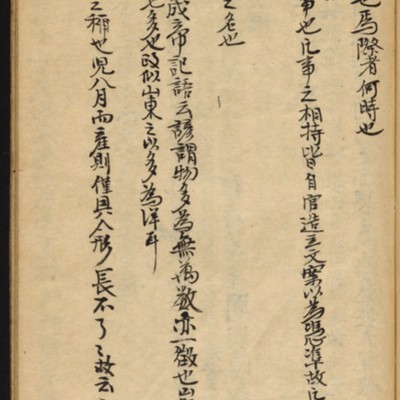 也焉際者何時也
事也凡事之相持皆自官造立文案以為憑準故凡
之名也
成帝記語云諺謂物多為無萬數亦一徵也山
多也政似山東之以多為洋耳
之稱也兒八月而產則僅具人形長不了々故云